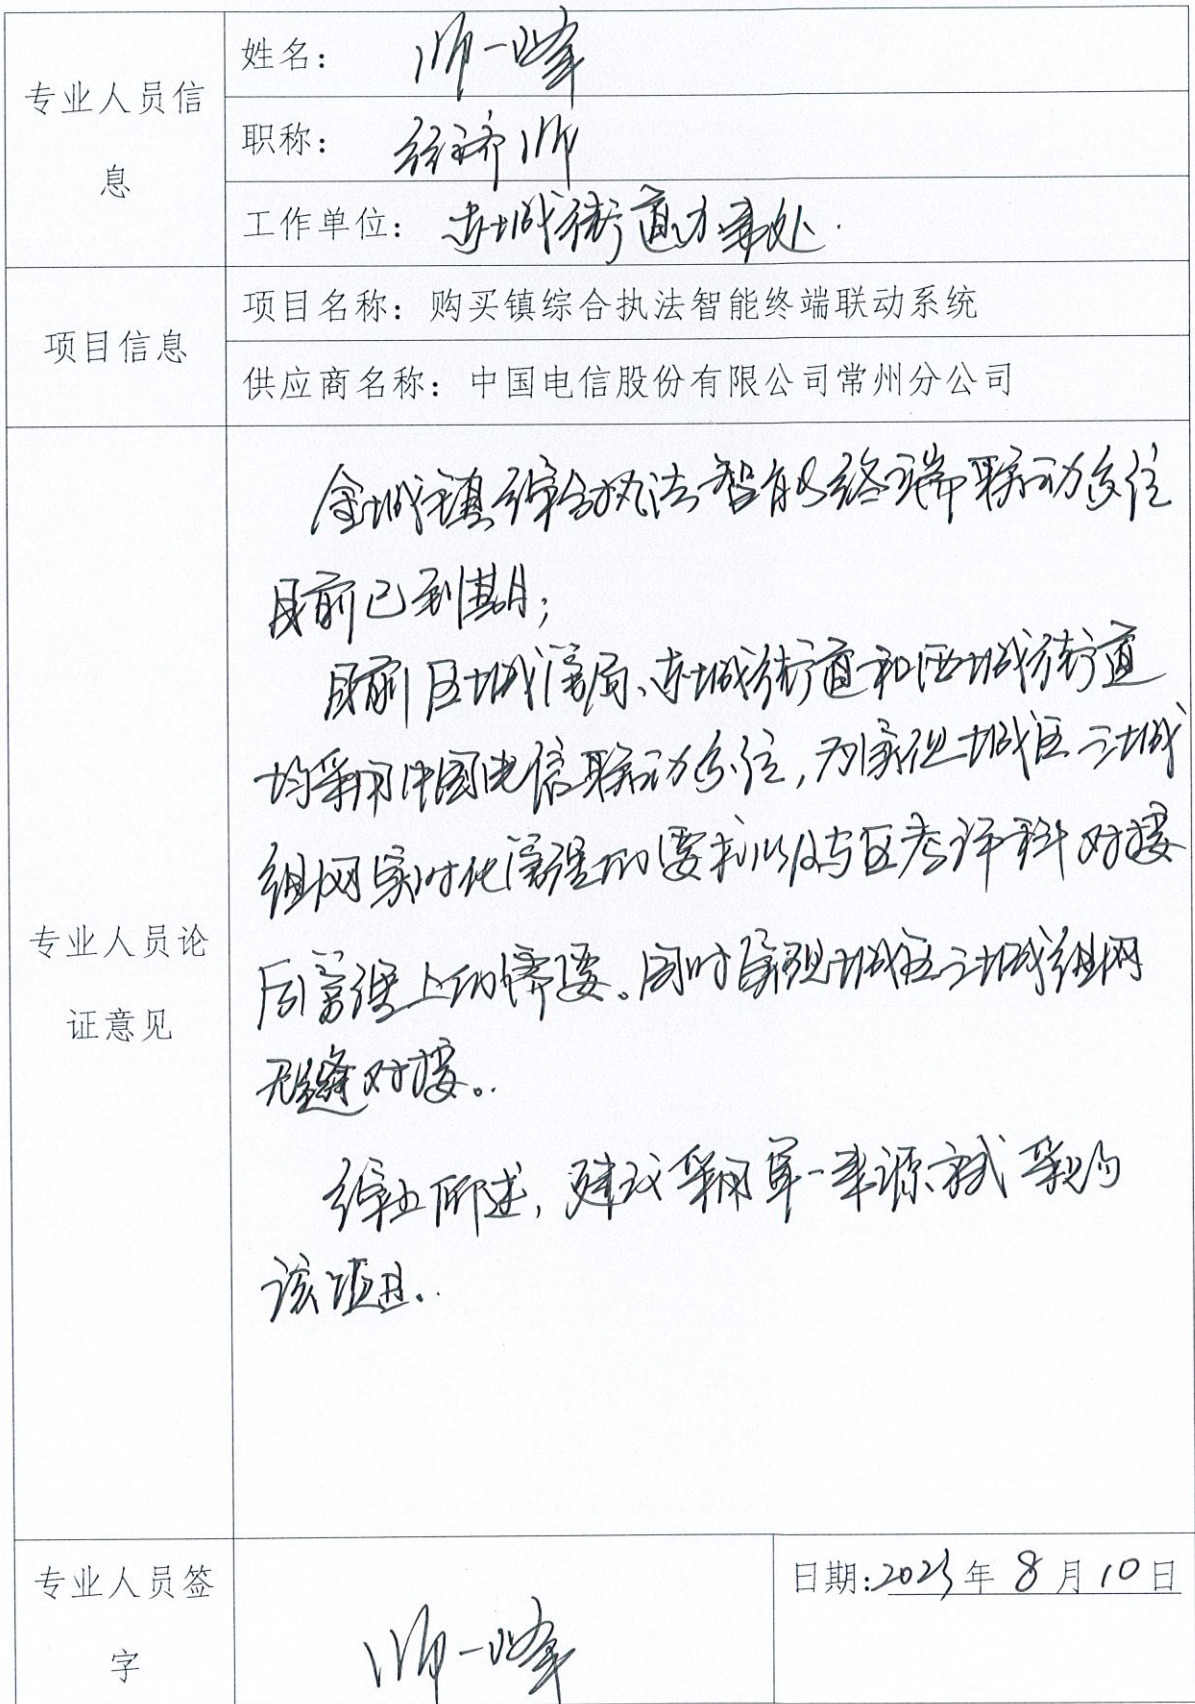 专业人员信息
姓名： 师一峰
职称： 经济师
工作单位： 东城街道办事处.
项目信息
项目名称：购买镇综合执法智能终端联动系统
供应商名称：中国电信股份有限公司常州分公司
专业人员论证意见
金城镇综合执法智能终端联动系统
目前已到期；
目前区城管局、东城街道和西城街道
均采用中国电信联动系统，为实现城区三城
组网实时化管理的要求以及与区考评科对接
后管理上的需要。同时实现城区三城组网
无缝对接。
综上所述，建议采用单一来源方式采购
该项目。
专业人员签字
师一峰
日期:2023年8月10日